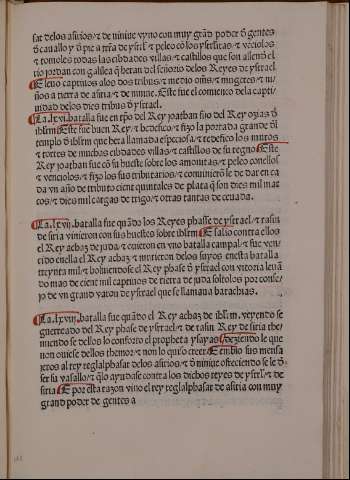 sar delos asirios/⁊ de niniue vyno con muy grãd poder ð gentes
ð cauallo y ð pie a tr̃ra de ysr̃l ⁊ peleo cõ los ysr̃litas/⁊ vẽciolos
⁊ tomoles todas las cibdades villas/⁊ castillos que son allend el
rio jordan con galilea q̃ heran del señorio delos Reyes de ysrael
E leuo captiuos alos dos tribus/⁊ medio om̃s/⁊ mugeres/⁊ ni
ños a tierra de asiria/⁊ de niniue. Este fue el comienço dela capti
uidad delos dies tribus ð ysrael.
La.lxvi.batalla fue en tp̃o del Rey joathan fijo del Rey ozias ð
ihr̃lm Este fue buen Rey/⁊ hedefico/⁊ fizo la portada grande ðl
templo ð ihr̃lm que hera llamada especiosa/⁊ tedefico los muros
⁊ torres de muchas cibdades villas/⁊ castillos de su regno Este
Rey joathan fue cõ su hueste sobre los amonitas/⁊ peleo conellos
⁊ venciolos/⁊ fizo los sus tributarios/⁊ conuinierõ le de dar en ca
da vn año de tributo cient quintales de plata q̃ son dies mil mar
cos/⁊ dies mil cargas de trigo/⁊ otras tantas de ceuada.
La.lxvij.batalla fue quãdo los Reyes phasse de ysrael/⁊ rasin
de siria vinieron con sus huestes sobre ihr̃lm E salio contra ellos
el Rey achas de juda/⁊ ouieron en vno batalla campal/⁊ fue ven
cido enella el Rey achaz/⁊ murieron delos suyos enesta batalla
treynta mil/⁊ boluiendose el Rey phase ð ysrael con vitoria leuã
do mas de cient mil captiuos de tierra de juda soltolos por conse
jo de vn grand varon de ysrael que se llamaua barachias.
La.lxviij.batalla fue quãdo el Rey achas de ihr̃lm. veyendo se
guerreado del Rey phase de ysrael/⁊ de rasin Rey de siria the
miendo se dellos lo conforto el propheta ysayas/deziendo le que
non ouiese dellos themor/⁊ non lo quiso creer E embio sus mensa
jeros al rey teglalphasar delos asirios/⁊ ð niniue ofreciendo se le ð
ser su vasallo/⁊ q̃ lo ayudase contra los dichos reyes de ysr̃l/⁊ de
siria E por esta razon vino el rey teglalphasar de asiria con muy
grand poder de gentes a